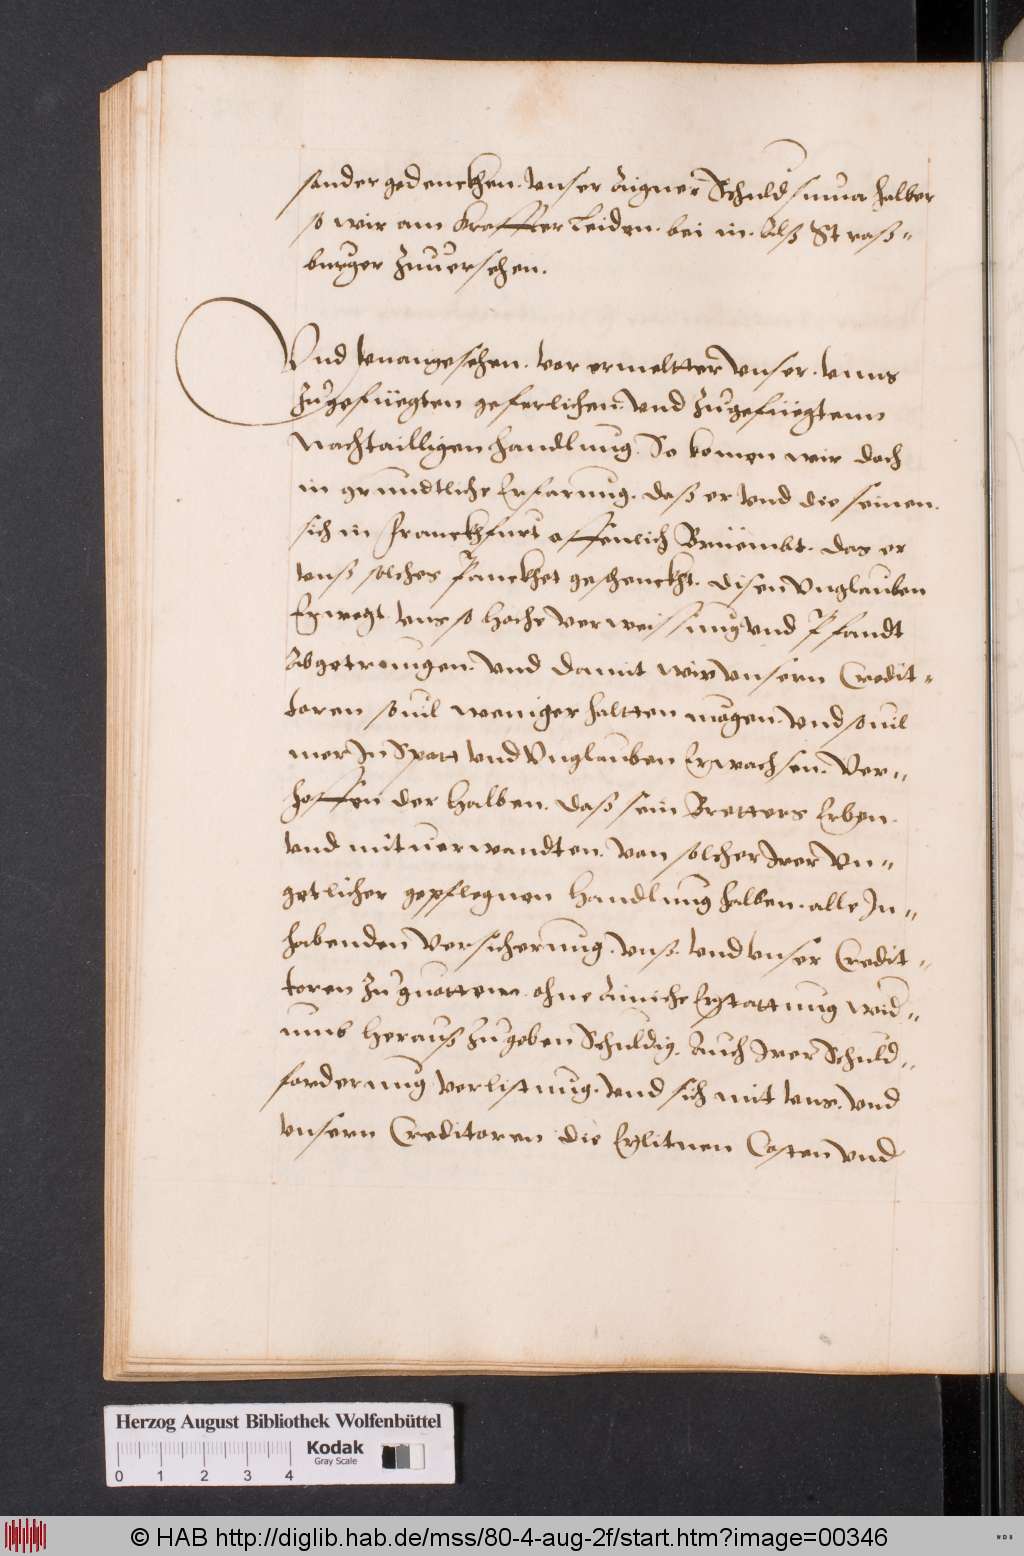 sonder gedenckhen. vnser aigner Schuld suma halber
so wir am Kraffter leiden. bei in. alß Straß=
burger zuuersehen.
Vnd vnangesehen. vor ermeltter vnser. vnns
zugefüegten geferlichen. vnd zugefüegtenn
nachtailligen handlung. So komen wir doch
in grundtliche Erfarung. daß er vnd die seinen.
sich in Franckhfurt offenlich Berüembt. das er
vnß solches Panckhet geschenckht. disen vnglauben
Erwegt vns so hoche verweissung vnd Pfandt
Abgetrungen. vnd damit wir vnsern Credit=
toren souil weniger haltten mögen. vnd souil
mer In Spott vnd Vnglauben Erwachsen. Ver=
hoffen der halben. daß sein Bretters Erben.
vnd mituerwandten. von solcher Irer Vn=
getlicher gepflegnen handlung halben. alle In=
habenden Versicherung. vnß. vnd vnser Credit=
toren zu guottem. ohne ainiche Erstattung wid=
umb herauß zugeben Schuldig. Auch Irer Schuld=
forderung verlistung. vnd sich mit vns. vnd
vnsern Creditoren die Erlitnen Costen vnd
Herzog August Bibliothek Wolfenbüttel
0 1 2 3 4
Kodak
Gray Scale
© HAB http://diglib.hab.de/mss/80-4-aug-2f/start.htm?image=00346